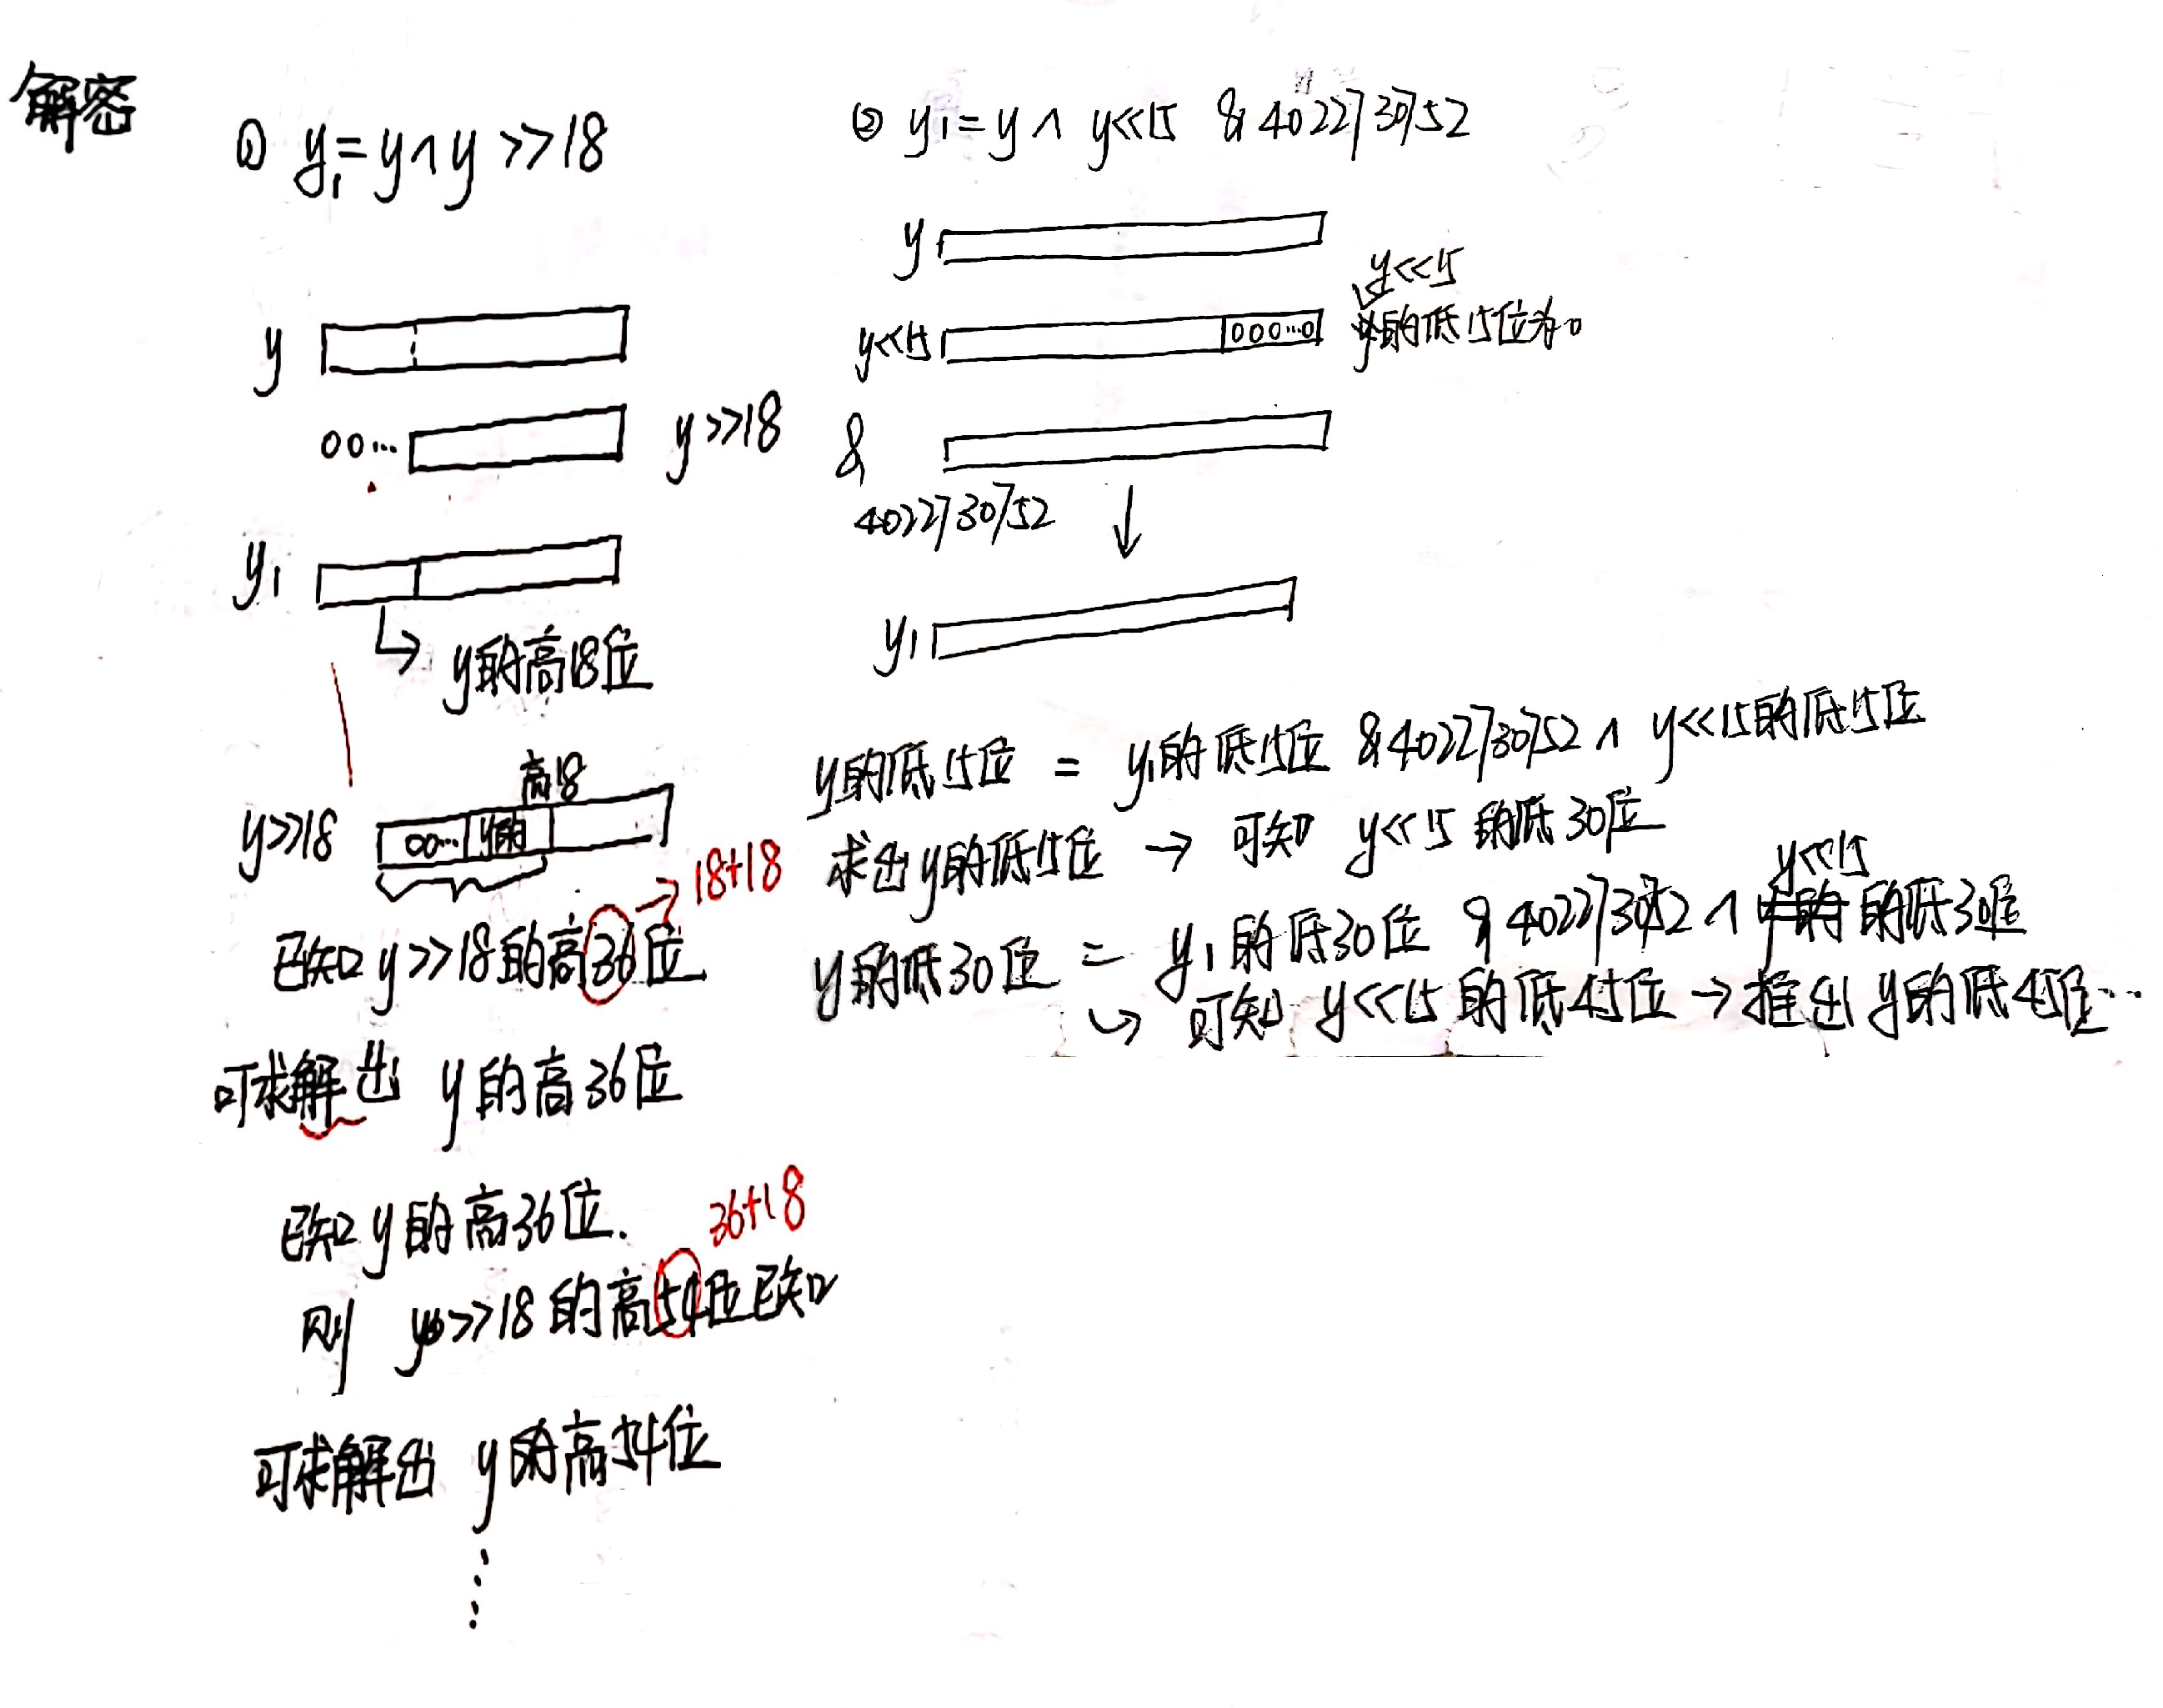 解密
① y₁=y∧y>>18
y
00... y>>18
y₁
y的高18位
高18
y>>18 00... y的
18+18
已知 y>>18的高36位
可求解出 y的高36位
已知 y的高36位.
36+18
则 y>>18的高54位已知
可求解出 y的高54位
⋮
② y₁=y∧ y<<15 & 4022730752
y
y<<15
y<<15 000...0 的低15位为0
&
4022730752
y₁
y的低15位 = y₁的低15位 & 4022730752 ∧ y<<15的低15位
求出y的低15位 → 可知 y<<15 的低30位
y<<15
y的低30位 = y₁的低30位 & 4022730752 ∧ 的低30位
↳ 可知 y<<15的低45位 → 推出 y的低45位...